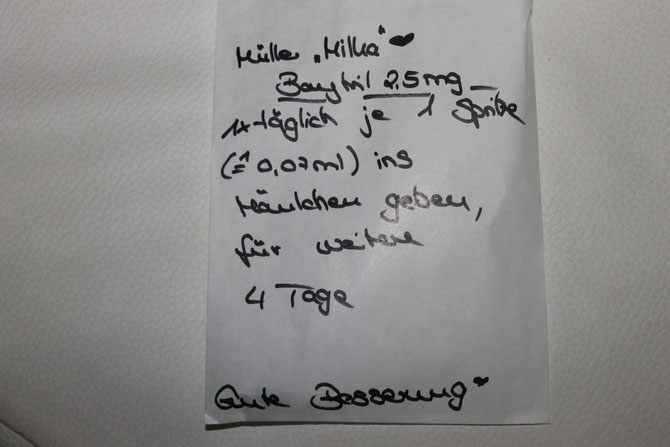 Müller "Milka" ♥
Baytril 2,5mg
1x täglich je 1 Spritze
(≙ 0,07ml) ins
Mäulchen geben,
für weitere
4 Tage
Gute Besserung